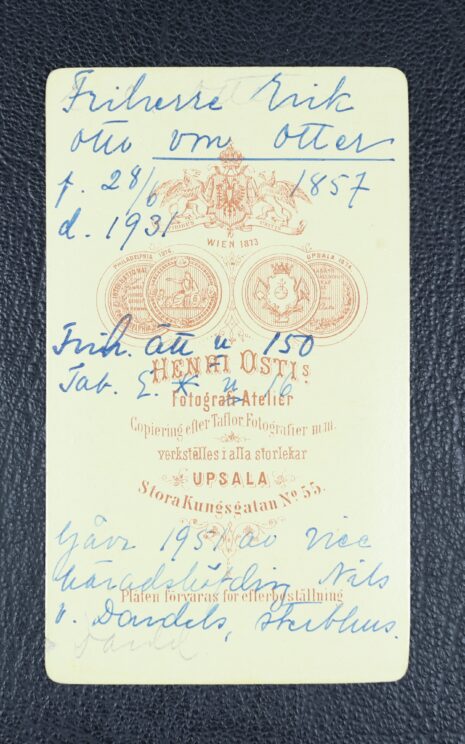 Friherre Erik
Otto von Otter
f. 28/6 1857
d. 1931
WIEN 1873
PHILADELPHIA 1876
UPSALA 1874
Frih. ätt n 150
HENRI OSTIS
Tab. 16
Fotografi-Atelier
Copiering efter Taflor, Fotografier m.m.
verkställes i alla storlekar
UPSALA
Stora Kungsgatan No 55.
Gåva 1951 av vice
häradshövding Nils
Plåten förvaras för efterbeställning
v. Dardels, sterbhus.